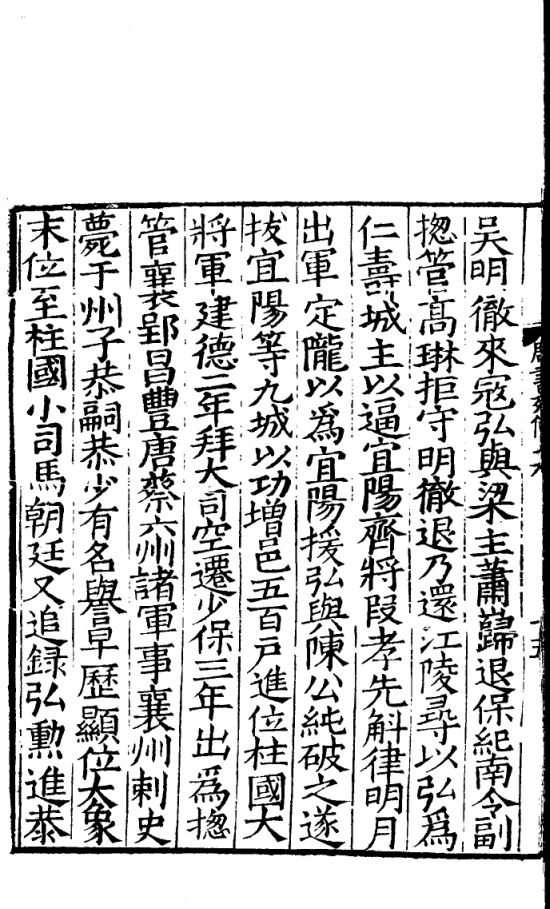 吳明徹來寇弘與梁主蕭巋退保紀南令副
揔管高琳拒守明徹退乃還江陵尋以弘爲
仁壽城主以逼宜陽齊將段孝先斛律明月
出軍定隴以爲宜陽援弘與陳公純破之遂
拔宜陽等九城以功增邑五百戶進位柱國大
將軍建德二年拜大司空遷少保三年出爲揔
管襄郢昌豐唐蔡六州諸軍事襄州刺史
薨于州子恭嗣恭少有名譽早歷顯位大象
末位至柱國小司馬朝廷又追録弘勲進恭